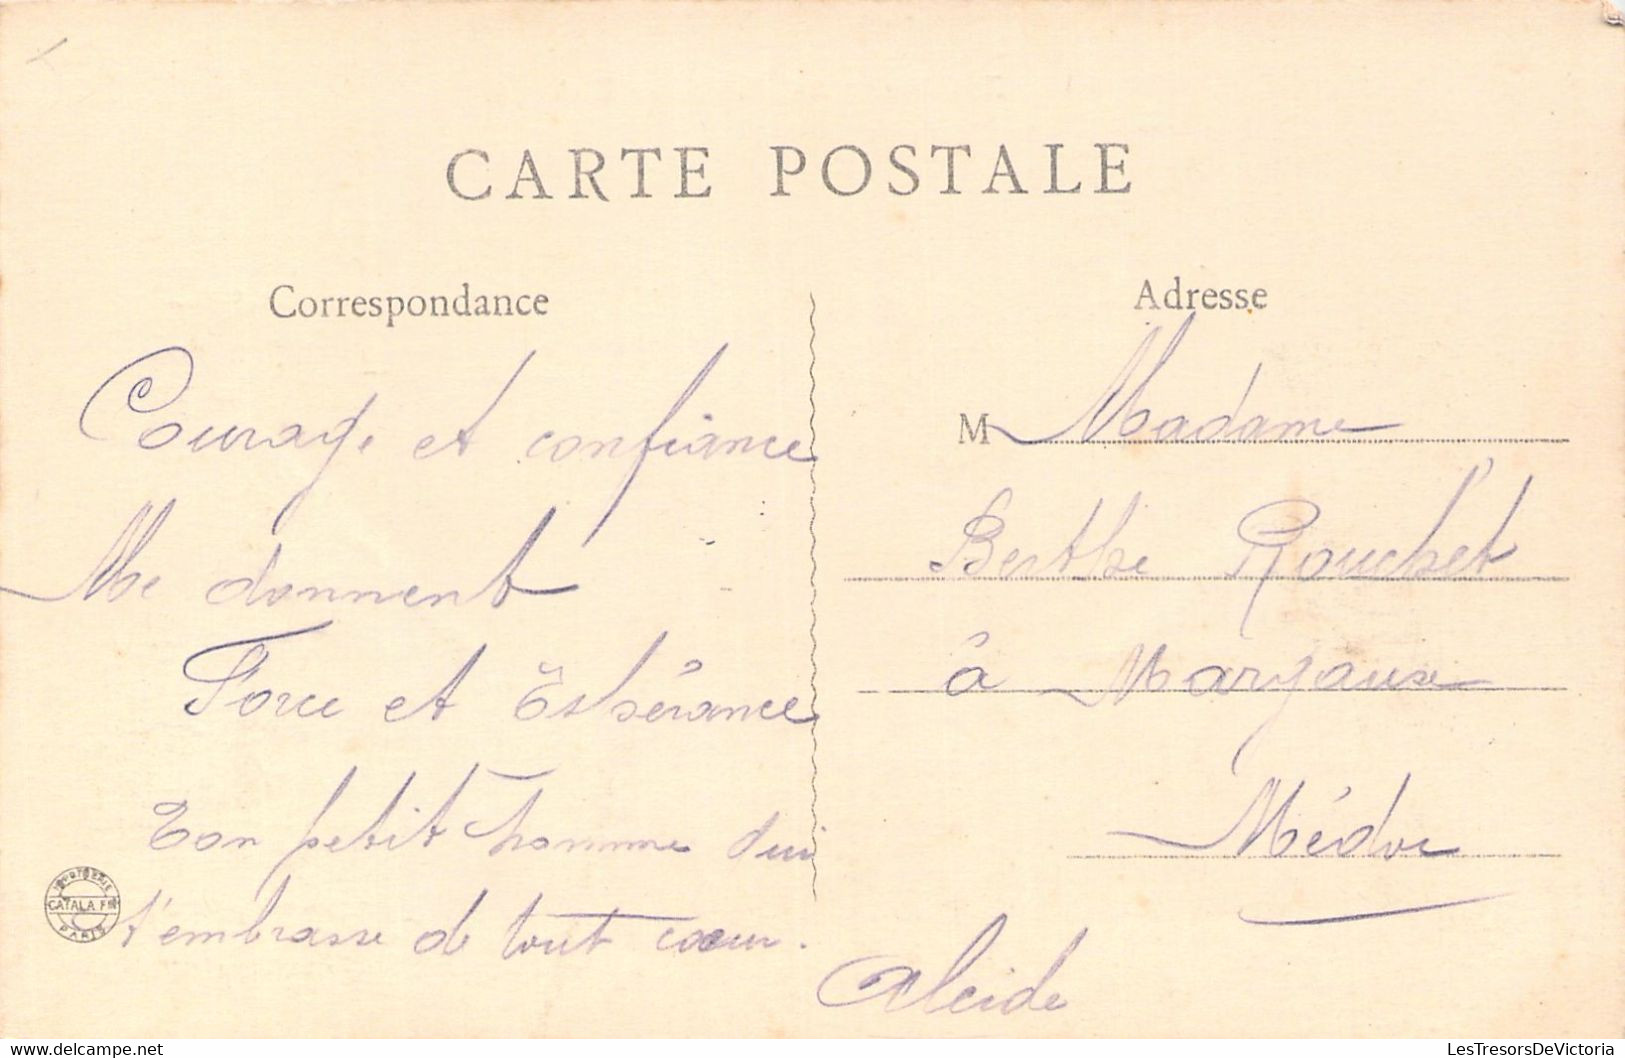 CARTE POSTALE
Correspondance
Courage et confiance
Me donnent
Force et Espérance
Ton petit homme qui
t'embrasse de tout cœur.
Alcide
Adresse
M Madame
Berthe Rouchet
à Margaux
Médoc
IMPRIMERIE
CATALA FRES
PARIS
LesTresorsDeVictoria